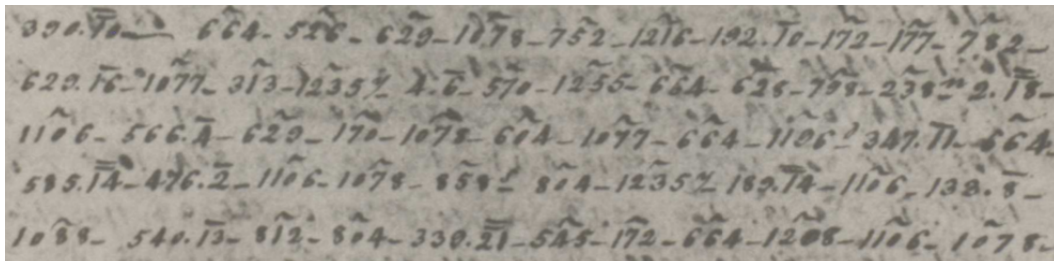 390.10— 664- 526- 629-1078-752-1216-192.10-172-177-782-
629.16-1077-313-1235y 4.6-570-1255-664-628-798-238m 2.18-
1106-566.4-629-170-1078-604-1077-664-1106 347.11-664-
585.14-476.2-1106-1078- 804-1235y 189.14-1106-133.8-
1088- 540.13-812-804-339.21-545-172-664-1208-1106-1078-